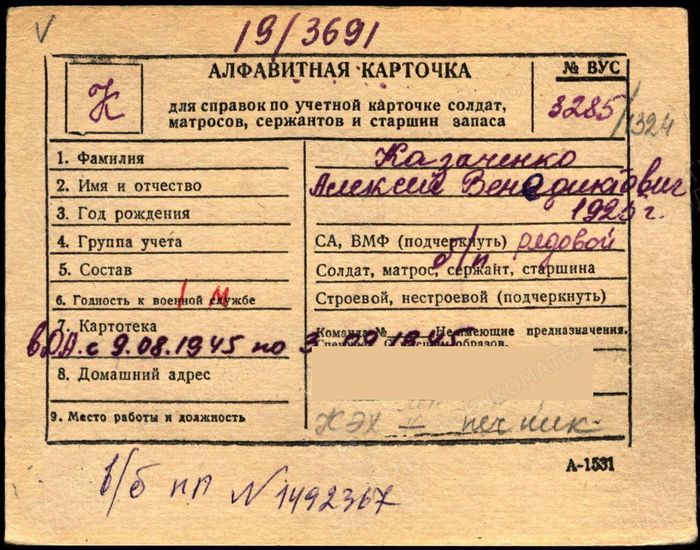 V
19/3691
К
АЛФАВИТНАЯ КАРТОЧКА
для справок по учетной карточке солдат,
матросов, сержантов и старшин запаса
№ ВУС
3285/1324
1. Фамилия Казаченко
2. Имя и отчество Алексей Венедиктович
3. Год рождения г.
4. Группа учета СА, ВМФ (подчеркнуть) рядовой
5. Состав Солдат, матрос, сержант, старшина б/п
6. Годность к военной службе Строевой, нестроевой (подчеркнуть)
7. Картотека Команда № Не имеющие предназначения.
в О.А. с 9.08.1945 по 3 09 1945
8. Домашний адрес
9. Место работы и должность КЭЧ печник
А-1531
в/б пп N 1492367